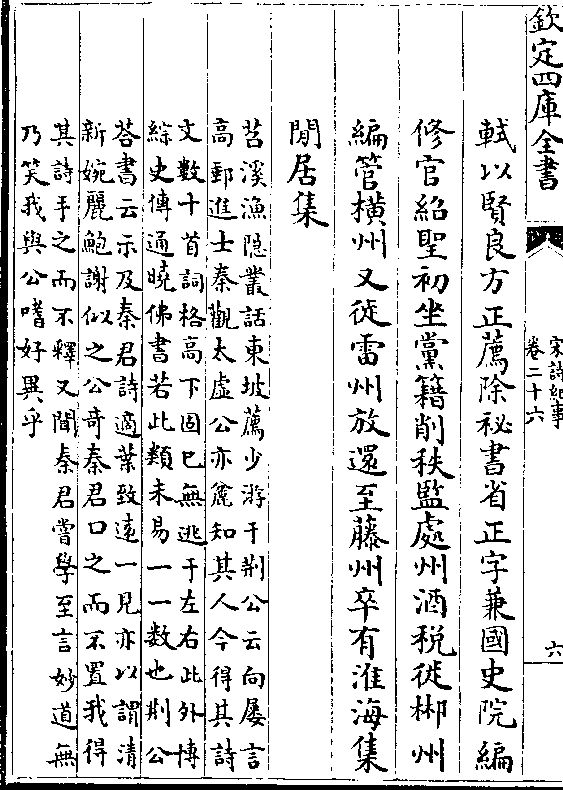 欽定四庫全書
宋詩紀事
卷二十六
六
軾以賢良方正薦除祕書省正字兼國史院編
修官紹聖初坐黨籍削秩監處州酒稅徙郴州
編管橫州又徙雷州放還至藤州卒有淮海集
閒居集
苕溪漁隐叢話東坡薦少游于荆公云向屡言
高郵進士秦觀太虛公亦麄知其人今得其詩
文數十首詞格高下固已無逃于左右此外博
綜史傳通曉佛書若此類未易一一數也荆公
荅書云示及秦君詩適葉致遠一見亦以謂清
新婉麗鮑謝似之公奇秦君口之而不置我得
其詩手之而不釋又聞秦君嘗學至言妙道無
乃笑我與公嗜好異乎